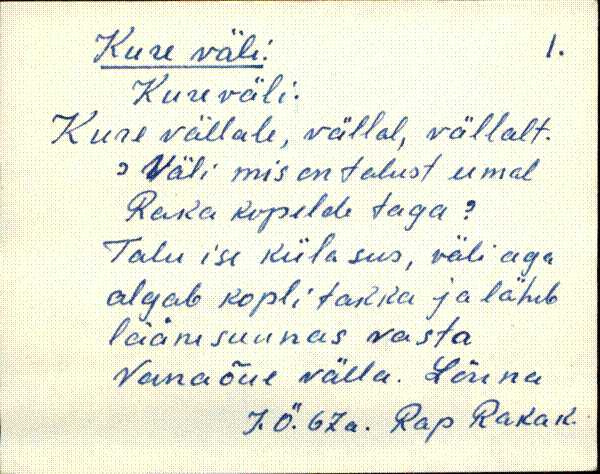 Kure väli. 1.
Kure väli.
Kure vällale, vällal, vällalt.
? Väli mis on talust eemal
Raka kopelde taga?
Talu ise küla sus, väli aga
algab kopli takka ja läheb
läänesuunas vasta
Vanaõue välla. Lõuna
J.Ö. 67a. Rap Rakak.